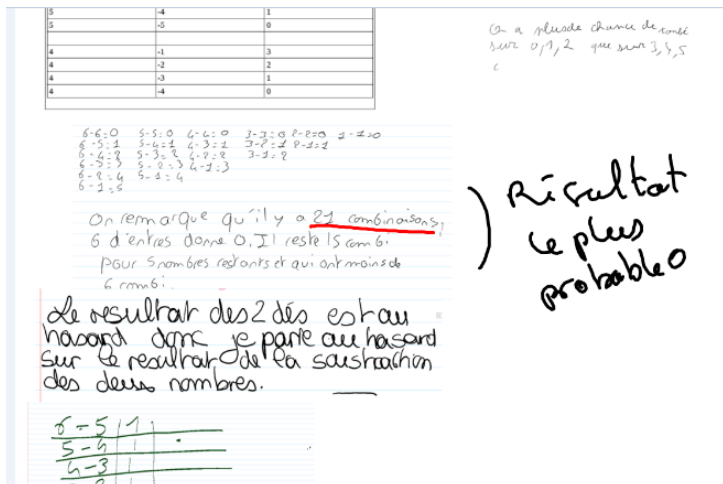 5 -4 1
5 -5 0
4 -1 3
4 -2 2
4 -3 1
4 -4 0
On a plus de chance de tombé
sur 0,1,2 que sur 3,4,5
6-6=0 5-5=0 4-4=0 3-3=0 2-2=0 1-1=0
6-5=1 5-4=1 4-3=1 3-2=1 2-1=1
6-4=2 5-3=2 4-2=2 3-1=2
6-3=3 5-2=3 4-1=3
6-2=4 5-1=4
6-1=5
On remarque qu'il y a 21 combinaisons,
6 d'entres donne 0, Il reste 15 combi
pour 5 nombres restants et qui ont moins de
6 combi.
) Résultat
le plus
probable 0
Le resultat des 2 dés est au
hasard donc je parie au hasard
sur le resultat de la soustraction
des deux nombres.
6-5 1
5-4 1
4-3 1